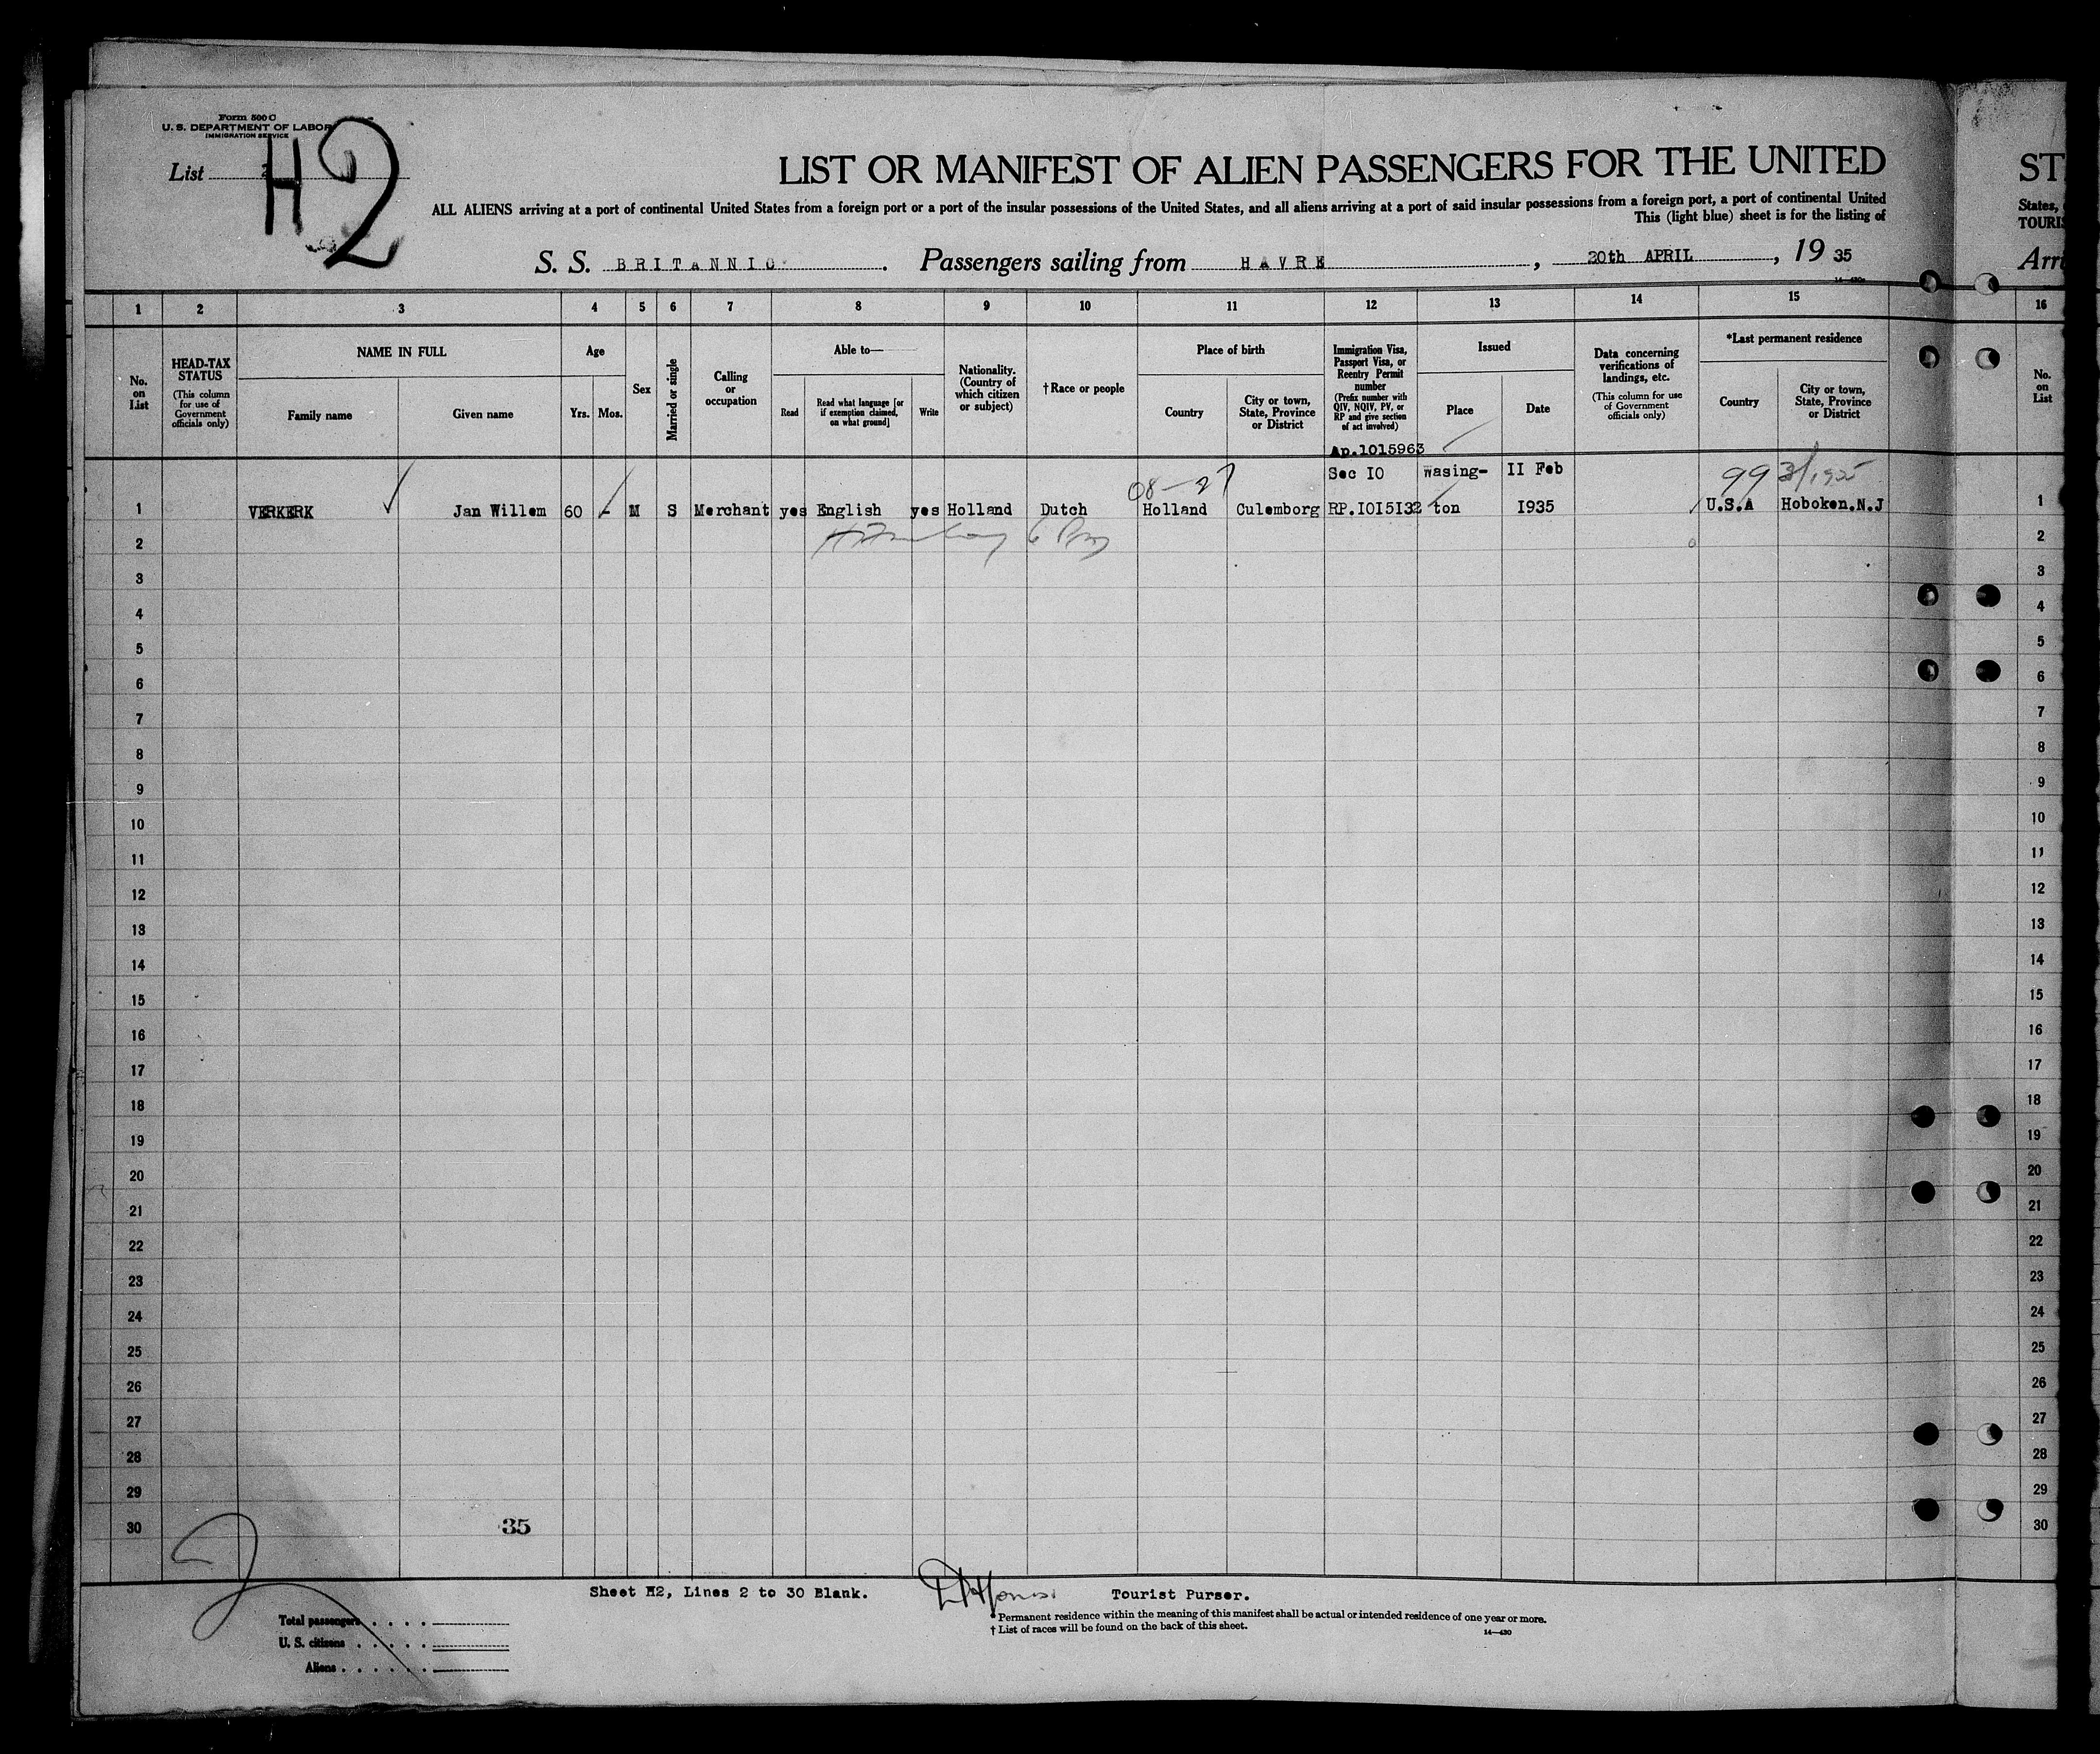 Form 500 C
U. S. DEPARTMENT OF LABOR
IMMIGRATION SERVICE
List
H2
LIST OR MANIFEST OF ALIEN PASSENGERS FOR THE UNITED
ST
ALL ALIENS arriving at a port of continental United States from a foreign port or a port of the insular possessions of the United States, and all aliens arriving at a port of said insular possessions from a foreign port, a port of continental United
States,
This (light blue) sheet is for the listing of
TOURIS
S. S. BRITANNIC. Passengers sailing from HAVRE, 20th APRIL, 19 35
Arri
1 2 3 4 5 6 7 8 9 10 11 12 13 14 15 16
No. on List
HEAD-TAX STATUS
(This column for use of Government officials only)
NAME IN FULL
Family name
Given name
Age
Yrs. Mos.
Sex
Married or single
Calling or occupation
Able to—
Read
Read what language [or if exemption claimed, on what ground]
Write
Nationality. (Country of which citizen or subject)
†Race or people
Place of birth
Country
City or town, State, Province or District
Immigration Visa, Passport Visa, or Reentry Permit number
(Prefix number with QIV, NQIV, PV, or RP and give section of act involved)
Issued
Place
Date
Data concerning verifications of landings, etc.
(This column for use of Government officials only)
*Last permanent residence
Country
City or town, State, Province or District
No. on List
Ap.1015963
Sec IO Wasing- II Feb
99
1 VERKERK Jan Willem 60 - M S Merchant yes English yes Holland Dutch Holland Culemborg RP.IOI5I32 ton I935 U.S.A Hoboken.N.J 1
2 2
3 3
4 4
5 5
6 6
7 7
8 8
9 9
10 10
11 11
12 12
13 13
14 14
15 15
16 16
17 17
18 18
19 19
20 20
21 21
22 22
23 23
24 24
25 25
26 26
27 27
28 28
29 29
30 35 30
Sheet H2, Lines 2 to 30 Blank. Tourist Purser.
Total passengers
U. S. citizens
Aliens
* Permanent residence within the meaning of this manifest shall be actual or intended residence of one year or more.
† List of races will be found on the back of this sheet.
14—430